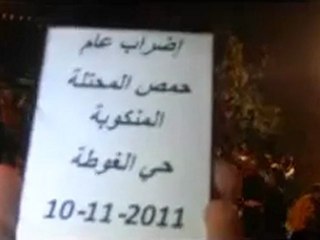 إضراب عام
حمص المحتلة
المنكوبة
حي الغوطة
10-11-2011